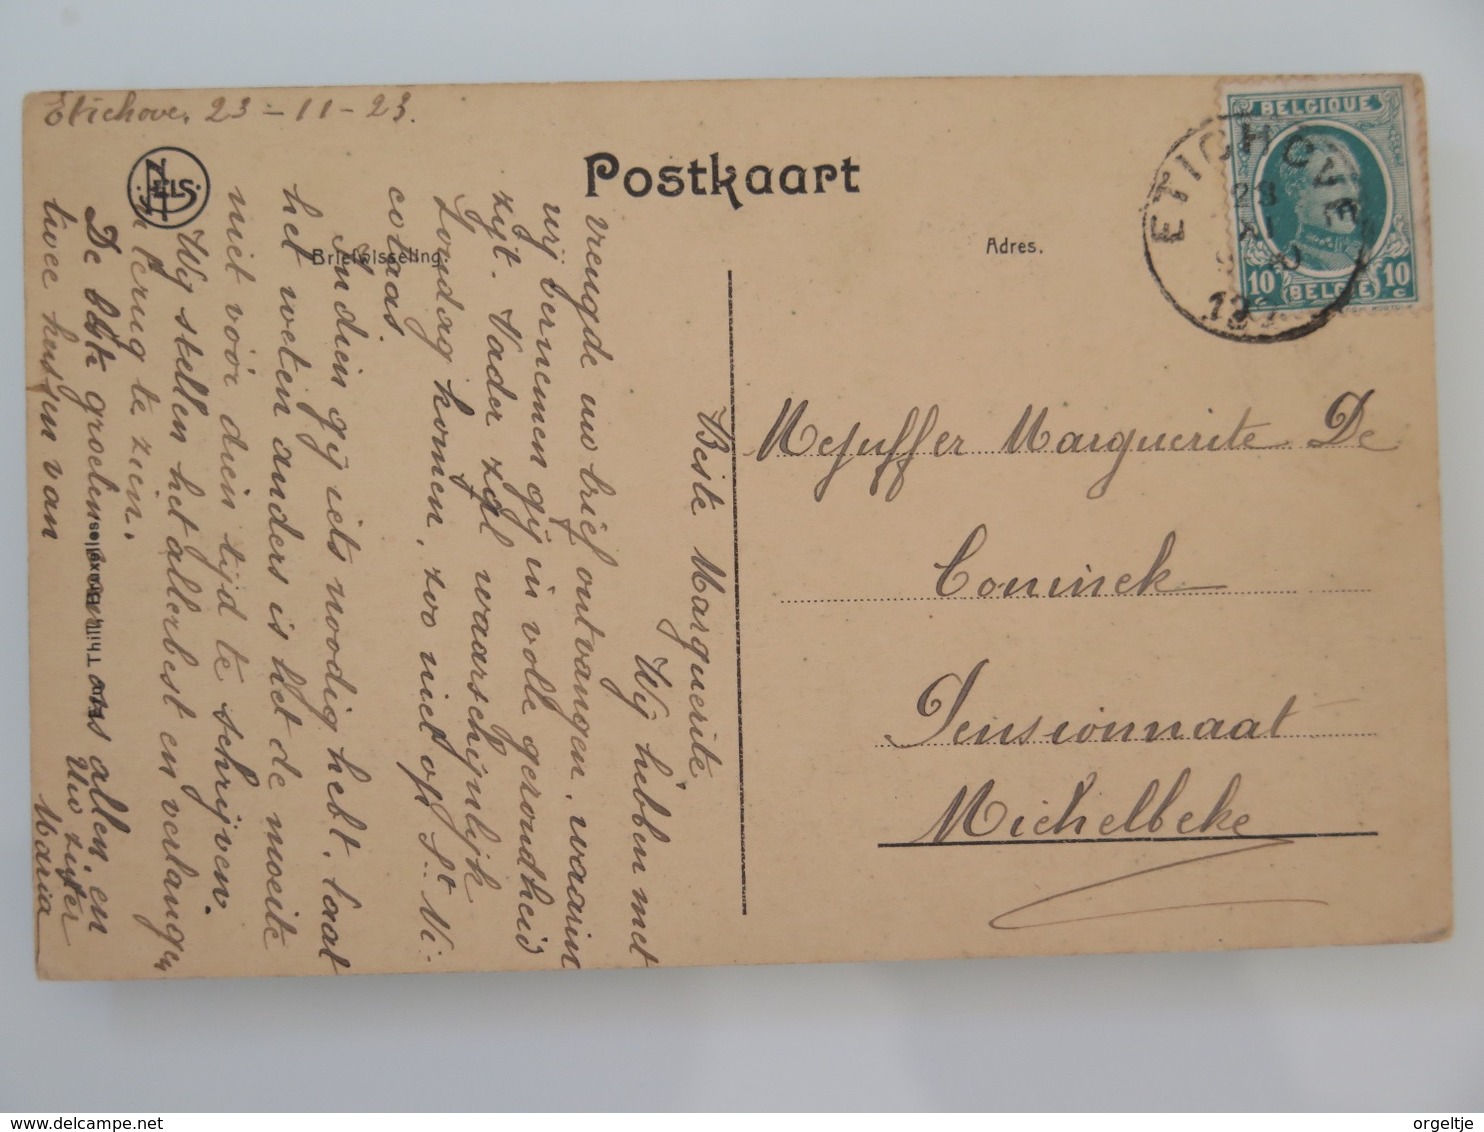 Etichove, 23-11-23.
NELS
Postkaart
Briefwisseling.
Adres.
BELGIQUE
10c
10c
BELGIË
ETICHOVE
23
XI
Beste Marguerite
Wij hebben met
vreugde uw brief ontvangen, waarin
wij vernemen gij in volle gezondheid
zijt. Vader zal waarschijnlijk
Zondag komen, zoo niet op St. Ni-
colaas
Indien gij iets noodig hebt, laat
het weten anders is het de moeite
niet vóór dien tijd te schrijven.
Wij stellen het allerbest en verlangen
u terug te zien.
De beste groeten van ons allen, en
twee kussen van
Uw zuster
Maria
Mejuffer Marguerite De
Coninck
Pensionnaat
Michelbeke
Ern. Thill, Bruxelles
www.delcampe.net
orgeltje